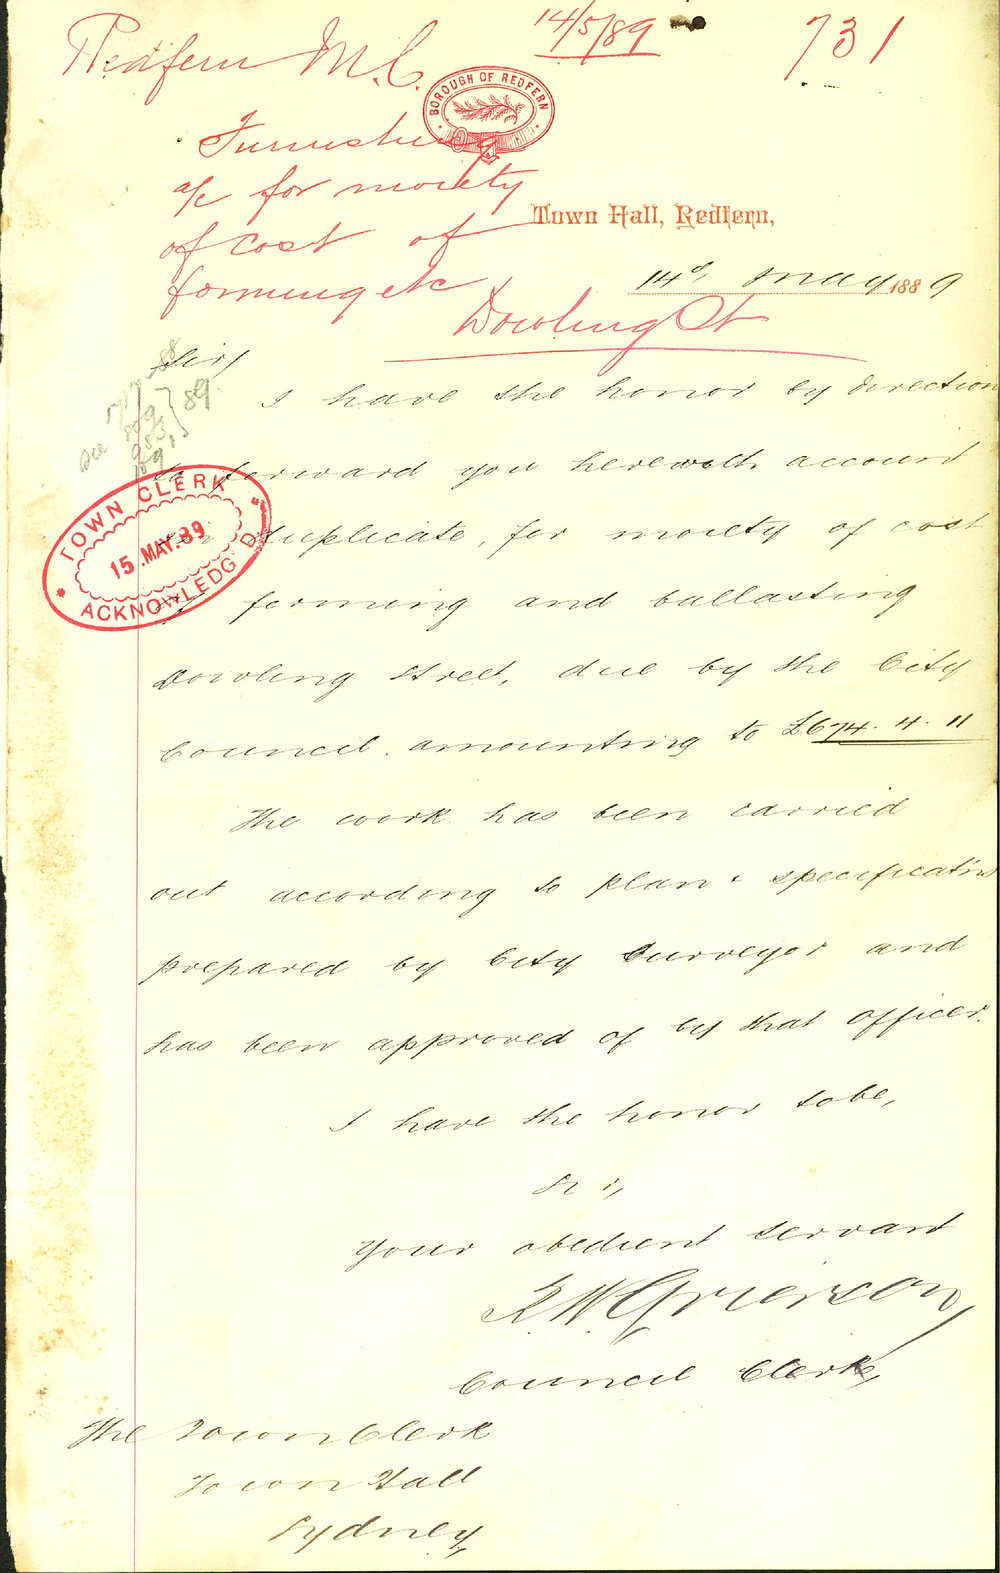 Redfern M.C.
14/5/89
731
BOROUGH OF REDFERN
Furnishing
a/c for moiety
of cost of
forming etc
Dowling St
Town Hall, Redfern,
14th May 1889
Sir,
See
89
I have the honor by direction
to forward you herewith account
in duplicate, for moiety of cost
of forming and ballasting
Dowling Street, due by the City
Council. amounting to £674. 4. 11
TOWN CLERK
15 . MAY. 89
ACKNOWLEDG'D
The work has been carried
out according to plan & specification
prepared by City Surveyor and
has been approved of by that officer.
I have the honor to be,
Sir,
Your obedient servant
R W Grierson,
Council Clerk,
The Town Clerk
Town Hall
Sydney,